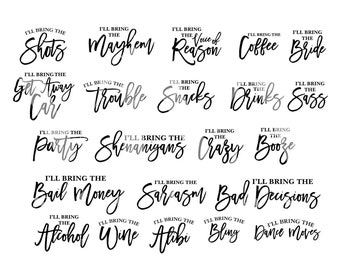 I'LL BRING THE
Shots
I'LL BRING THE
Mayhem
I'LL BRING THE
Voice of
Reason
I'LL BRING THE
Coffee
I'LL BRING THE
Bride
I'LL BRING THE
Get Away
Car
I'LL BRING THE
Trouble
I'LL BRING THE
Snacks
I'LL BRING THE
Drinks
I'LL BRING THE
Sass
I'LL BRING THE
Party
I'LL BRING THE
Shenanigans
I'LL BRING THE
Crazy
I'LL BRING THE
Booze
I'LL BRING THE
Bail Money
I'LL BRING THE
Sarcasm
I'LL BRING THE
Bad Decisions
I'LL BRING
THE
Alcohol
I'LL BRING THE
Wine
I'LL BRING THE
Alibi
I'LL BRING THE
Bling
I'LL BRING THE
Dance Moves